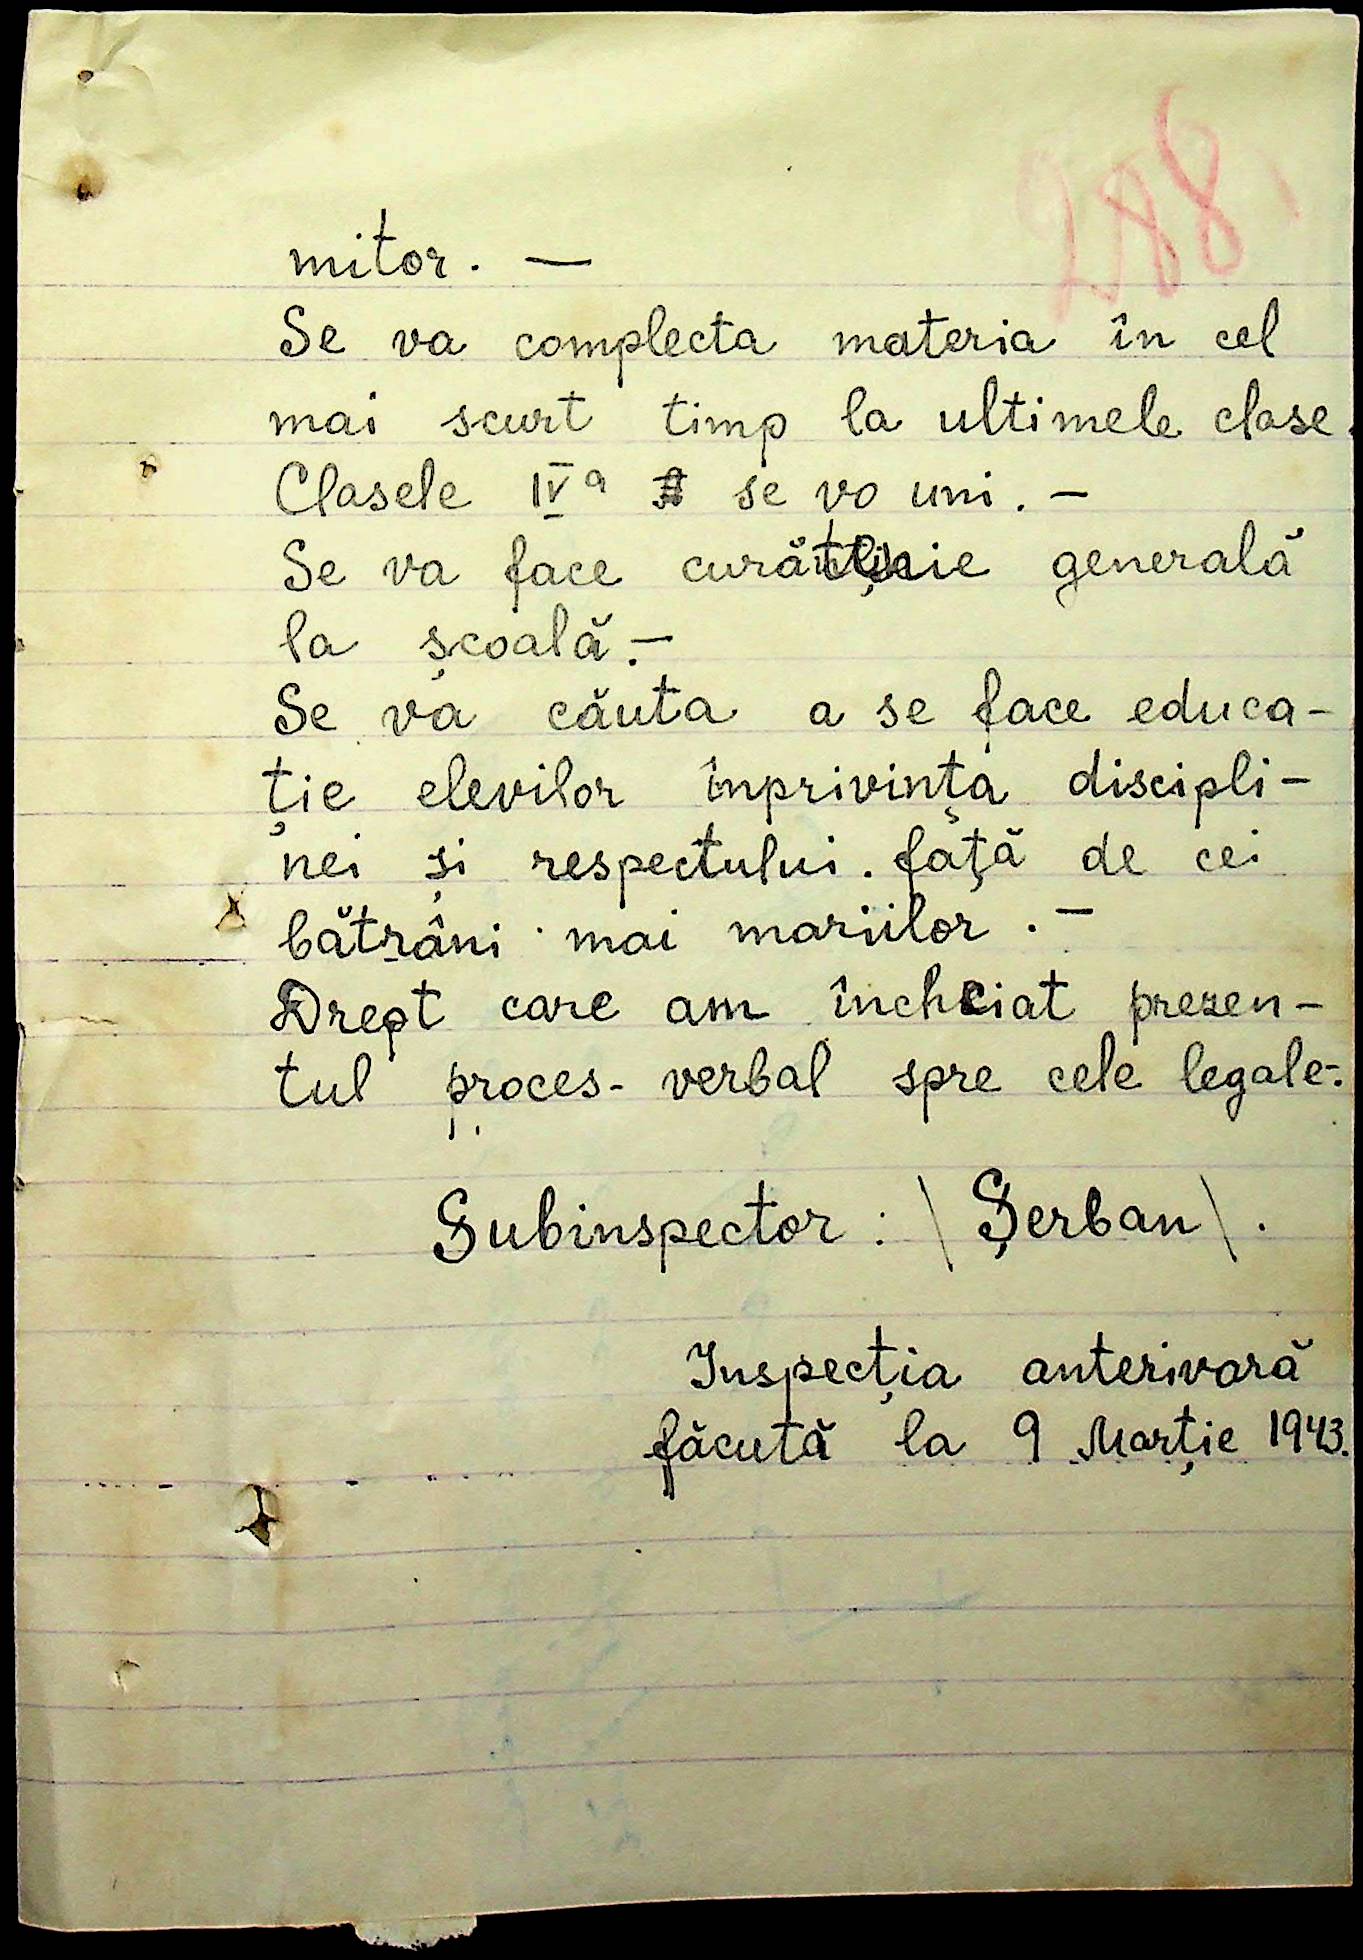 288
mitor. —
Se va complecta materia în cel
mai scurt timp la ultimele clase.
Clasele IV a se vo uni. —
Se va face curățenie generală
la școală. —
Se va căuta a se face educa-
ție elevilor înprivința discipli-
nei și respectului. față de cei
bătrâni. mai mariilor. —
Drept care am încheiat prezen-
tul proces-verbal spre cele legale-.
Subinspector: \ Șerban \.
Inspecția anterivară
făcută la 9 Marție 1943.